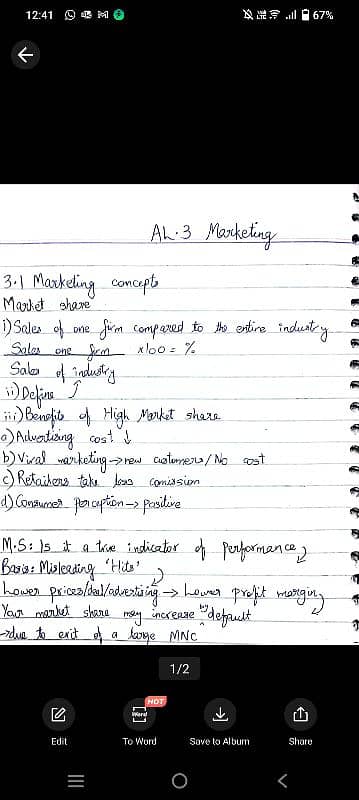 12:41
67%
AL.3 Marketing
3.1 Marketing concepts
Market share
i) Sales of one firm compared to the entire industry
Sales one firm x100 = %
Sales of industry
ii) Define ↑
iii) Benefits of High Market share
a) Advertising cost ↓
b) Viral marketing → new customers / No cost
c) Retailers take less comission
d) Consumer perception → positive
M.S: Is it a true indicator of performance?
Basis: Misleading 'Hits'
Lower prices/deal/advertising → Lower profit margin
Your market share may increase by default
→ due to exit of a large MNC
1/2
HOT
Word
Edit
To Word
Save to Album
Share